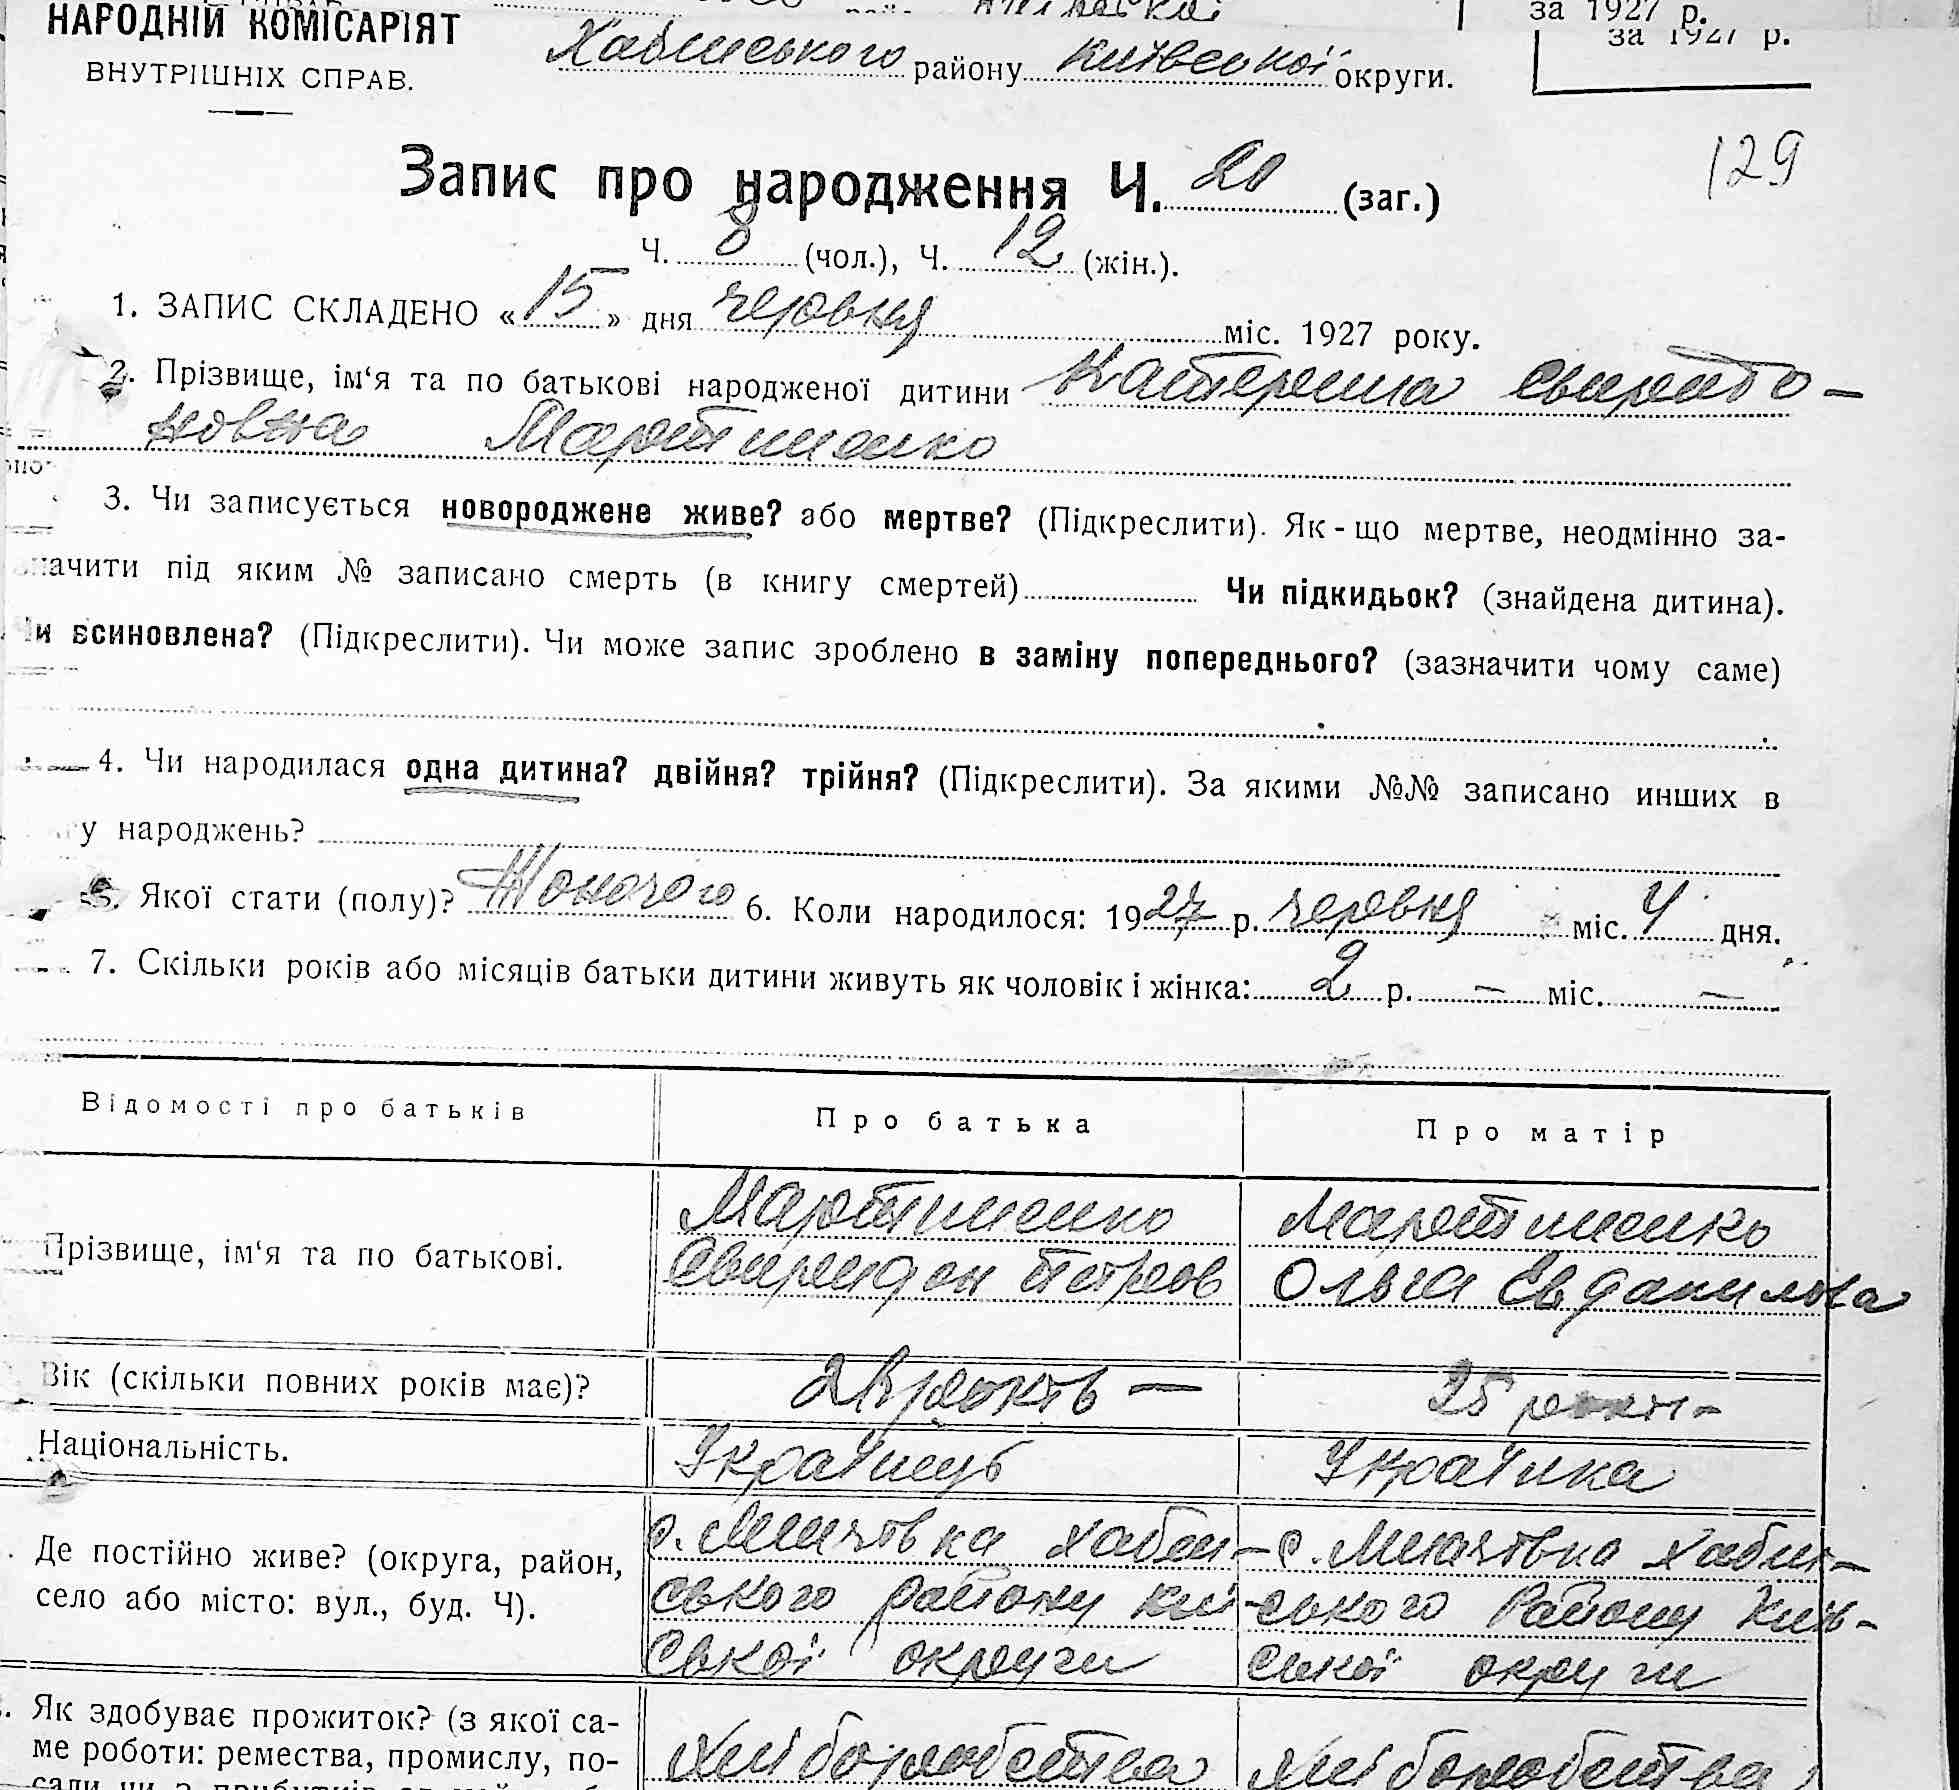 НАРОДНІЙ КОМІСАРІЯТ
ВНУТРІШНІХ СПРАВ.
за 1927 р.
за 1927 р.
Хабенського району Київської округи.
129
Запис про народження Ч. 20 (заг.)
Ч. 8 (чол.), Ч. 12 (жін.).
1. ЗАПИС СКЛАДЕНО «15» дня червня міс. 1927 року.
2. Прізвище, ім‘я та по батькові народженої дитини Катерина
Мартиненко
3. Чи записується новороджене живе? або мертве? (Підкреслити). Як-що мертве, неодмінно за-
значити під яким № записано смерть (в книгу смертей) Чи підкидьок? (знайдена дитина).
Чи всиновлена? (Підкреслити). Чи може запис зроблено в заміну попереднього? (зазначити чому саме)
4. Чи народилася одна дитина? двійня? трійня? (Підкреслити). За якими №№ записано инших в
у народжень?
5. Якої стати (полу)? Жоночого 6. Коли народилося: 1927 р. червня міс. 4 дня.
7. Скільки років або місяців батьки дитини живуть як чоловік і жінка: 2 р. — міс. —
Відомості про батьків Про батька Про матір
Прізвище, ім‘я та по батькові.
Мартиненко
Свиридон Петров
Мартиненко
Ольга Евдакилова
Вік (скільки повних років має)? років — 25 роки -
Національність. Українець Українка
Де постійно живе? (округа, район,
село або місто: вул., буд. Ч).
с. Мигювка Хабен-
ського району Ки-
ської округи
с. Мигювка Хабен-
ського Району Київ-
ської округи
Як здобуває прожиток? (з якої са-
ме роботи: ремества, промислу, по-
хліборобства хліборобства